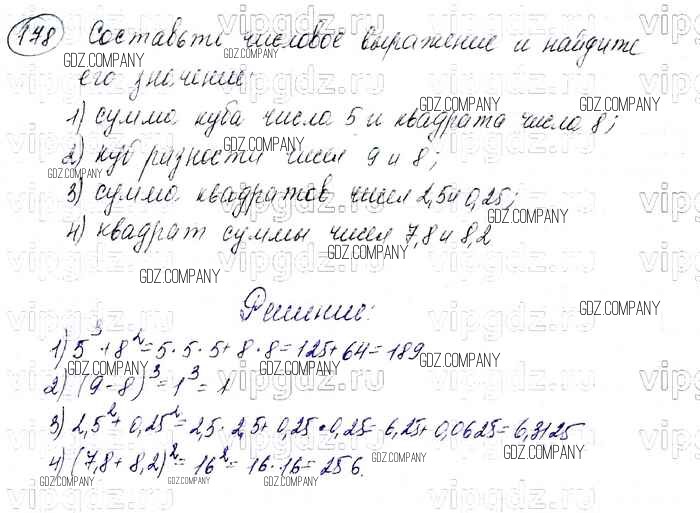 178 Составьте числовое выражение и найдите
его значение:
1) сумма куба числа 5 и квадрата числа 8;
2) куб разности чисел 9 и 8;
3) сумма квадратов чисел 2,5 и 0,25;
4) квадрат суммы чисел 7,8 и 8,2
Решение:
1) 5³+8²=5·5·5+8·8=125+64=189
2) (9-8)³=1³=1
3) 2,5²+0,25²=2,5·2,5+0,25·0,25=6,25+0,0625=6,3125
4) (7,8+8,2)²=16²=16·16=256.
vipgdz.ru
GDZ.COMPANY